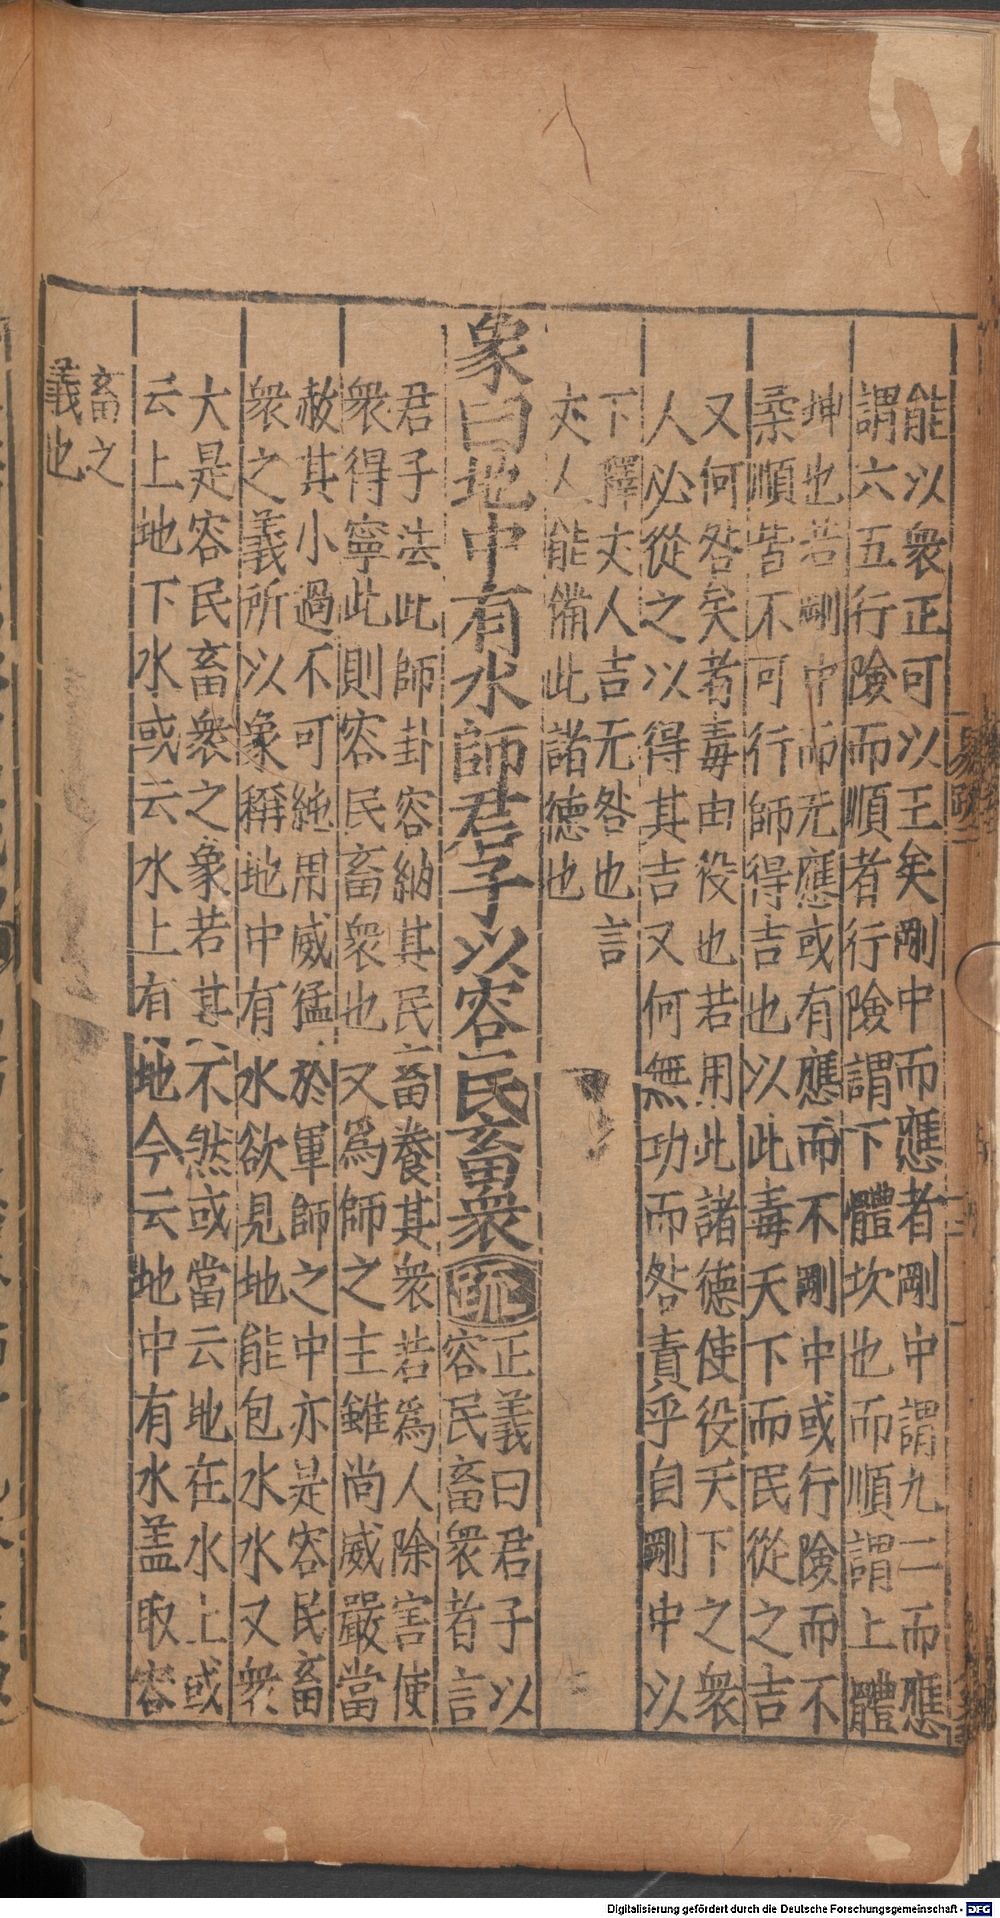 能以衆正可以王矣剛中而應者剛中謂九二而應
謂六五行險而順者行險謂下體坎也而順謂上體
坤也若剛中而无應或有應而不剛中或行險而不
柔順皆不可行師得吉也以此毒天下而民從之吉
又何咎矣者毒由役也若用此諸德使役天下之衆
人必從之以得其吉又何無功而咎責乎自剛中以
下釋丈人吉无咎也言
丈人能備此諸德也
象曰地中有水師君子以容民畜衆疏
正義曰君子以
容民畜衆者言
君子法此師卦容納其民畜養其衆若爲人除害使
衆得寧此則容民畜衆也又爲師之主雖尚威嚴當
赦其小過不可純用威猛於軍師之中亦是容民畜
衆之義所以象稱地中有水欲見地能包水水又衆
大是容民畜衆之象若其不然或當云地在水上或
云上地下水或云水上有地今云地中有水盖取容
畜之
義也
易疏二
Digitalisierung gefördert durch die Deutsche Forschungsgemeinschaft - DFG